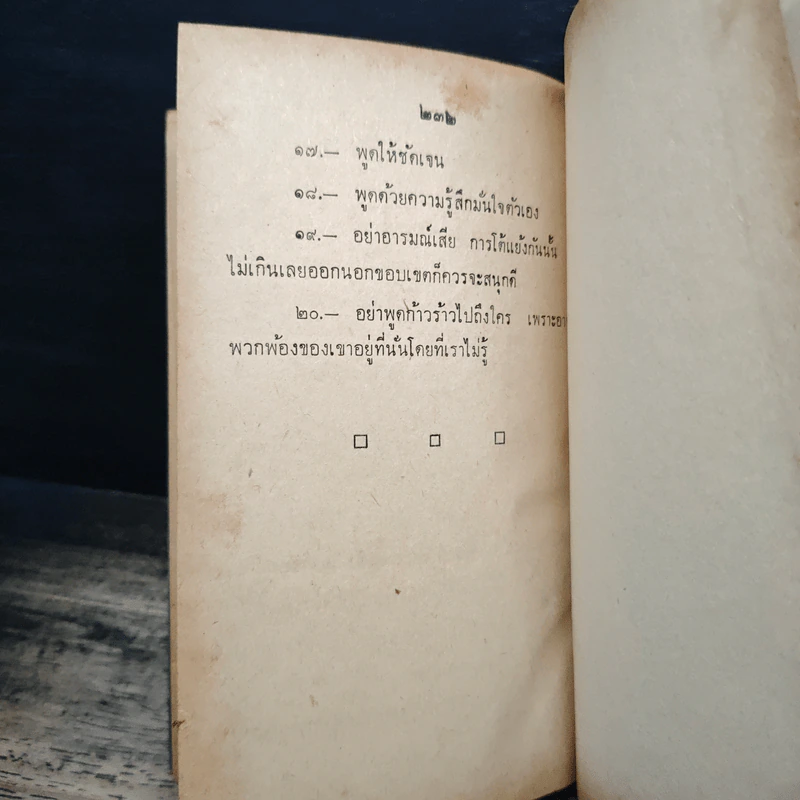 ๒๓๒
๑๗.— พูดให้ชัดเจน
๑๘.— พูดด้วยความรู้สึกมั่นใจตัวเอง
๑๙.— อย่าอารมณ์เสีย การโต้แย้งกันนั้น
ไม่เกินเลยออกนอกขอบเขตก็ควรจะสนุกดี
๒๐.— อย่าพูดก้าวร้าวไปถึงใคร เพราะ
พวกพ้องของเขาอยู่ที่นั่นโดยที่เราไม่รู้